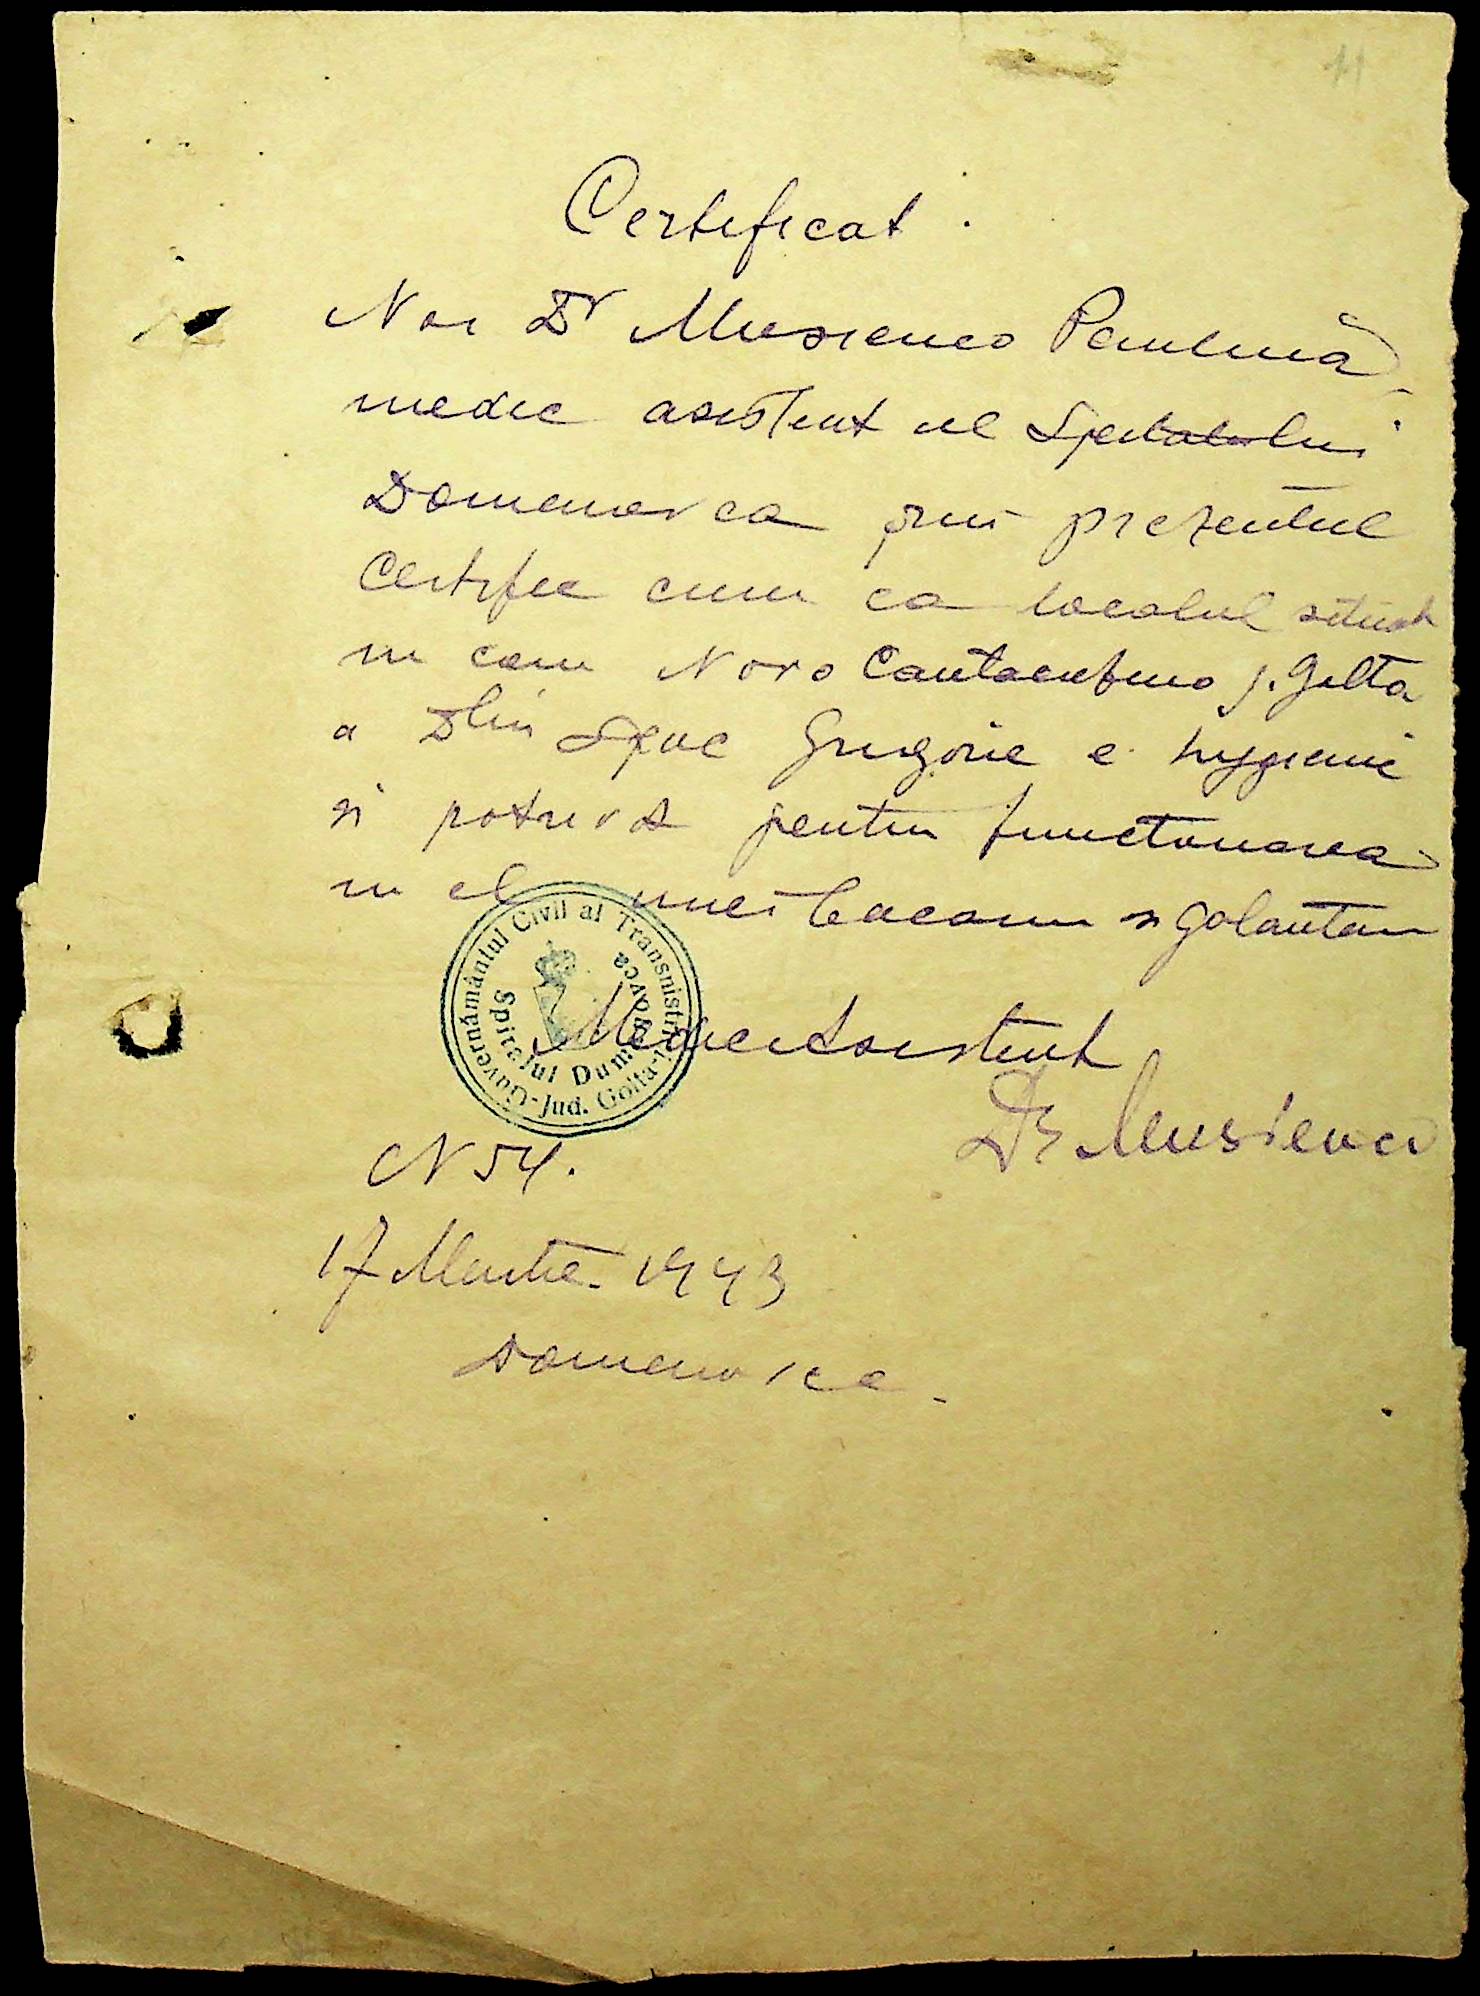 11
Certificat.
Noi Dr Musienco Paulina
medic asistent al Spitalului
Domanevca prin prezentul
Certific cum ca localul situat
in com Novo Cantacuzino j. Golta
a Dlui Grigorie e hygienic
si potrivit pentru functionarea
in el unei bacanii si galantarii
Guvernământul Civil al Transnistriei
Jud. Golta
Spitalul Dumanovca
Medic Asistent
Dr Musienco
N 54.
17 Martie 1943
Domanovca.